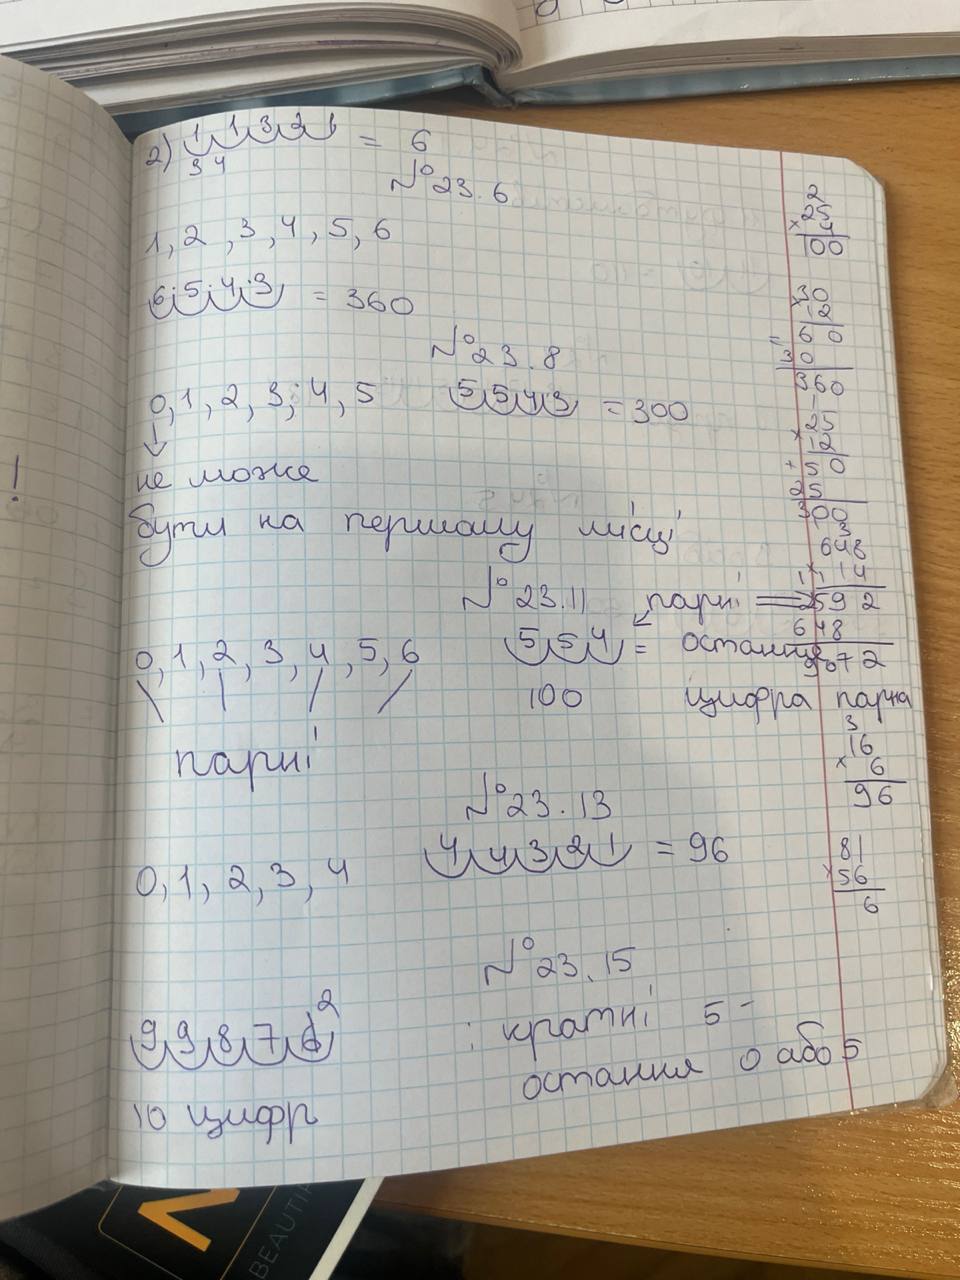 2) 1 1 3 2 1 = 6
3 4
№ 23.6
1, 2, 3, 4, 5, 6
6·5·4·3 = 360
№ 23.8
0, 1, 2, 3, 4, 5 5 5 4 3 = 300
не може
бути на першому місці
№ 23.11 парні
0, 1, 2, 3, 4, 5, 6 5 5 4 = остання
100 цифра парна
парні
№ 23.13
0, 1, 2, 3, 4 4 4 3 2 1 = 96
№ 23.15
2
9 9 8 7 : кратні 5 -
остання 0 або 5
10 цифр
2
25
× 4
100
× 30
12
60
30
360
1
× 25
12
+ 50
25
300
3
648
× 14
2592
648
9072
3
16
× 6
96
81
× 56
6
!
BEAUTI